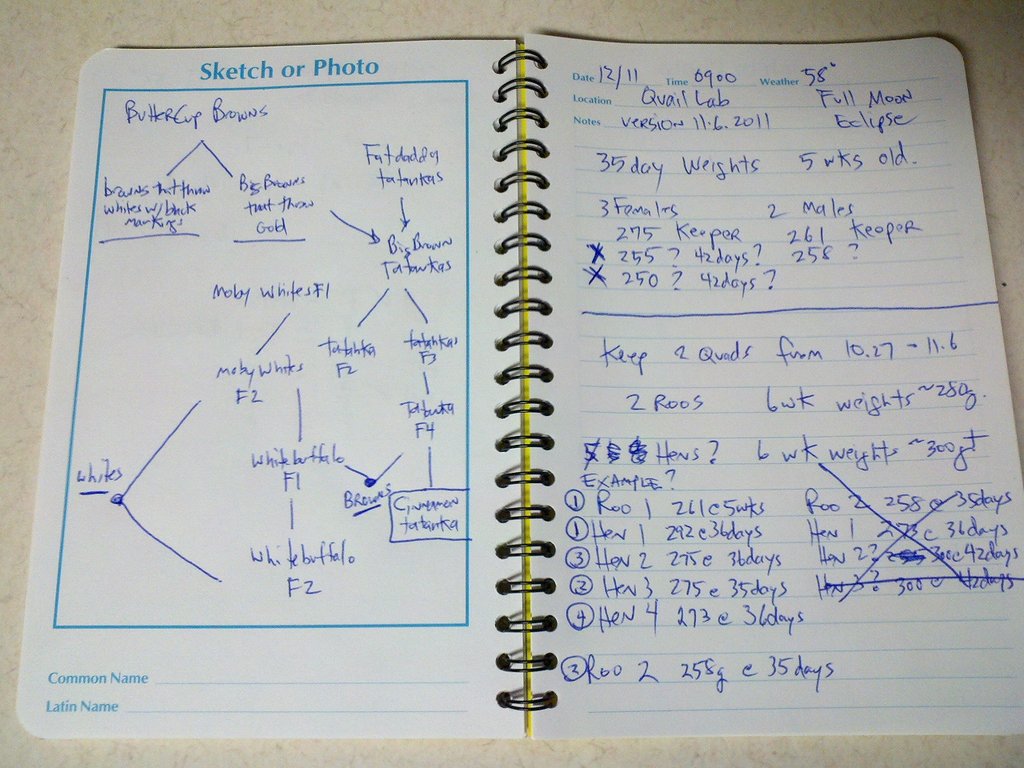 Sketch or Photo
ButterCup Browns
browns that throw
whites w/ black
markings
Big Browns
that throw
Gold
Fatdaddy
tatankas
Big Brown
Tatankas
Moby Whites F1
Moby Whites
F2
Tatanka
F2
tatankas
F3
Tatanka
F4
whites
Whitebuffalo
F1
Browns
Cinnamon
tatanka
Whitebuffalo
F2
Common Name
Latin Name
Date 12/11 Time 0900 Weather 58°
Location Quail Lab Full Moon
Notes VERSION 11.6.2011 Eclipse
35day Weights 5 wks old.
3 Females 2 Males
275 Keeper 261 Keeper
X 255 ? 42days? 258 ?
X 250 ? 42days?
Keep 2 Quads from 10.27 - 11.6
2 Roos 6wk weights ~280g.
Hens? 6 wk weights ~300g+
EXAMPLE?
① Roo 1 261@5wks Roo 2 258@35days
① Hen 1 292@36days Hen 1 273@36days
③ Hen 2 275@36days Hen 2? 300@42days
② Hen 3 275@35days Hen 3? 300@42days
④ Hen 4 273@36days
③ Roo 2 258g @ 35days